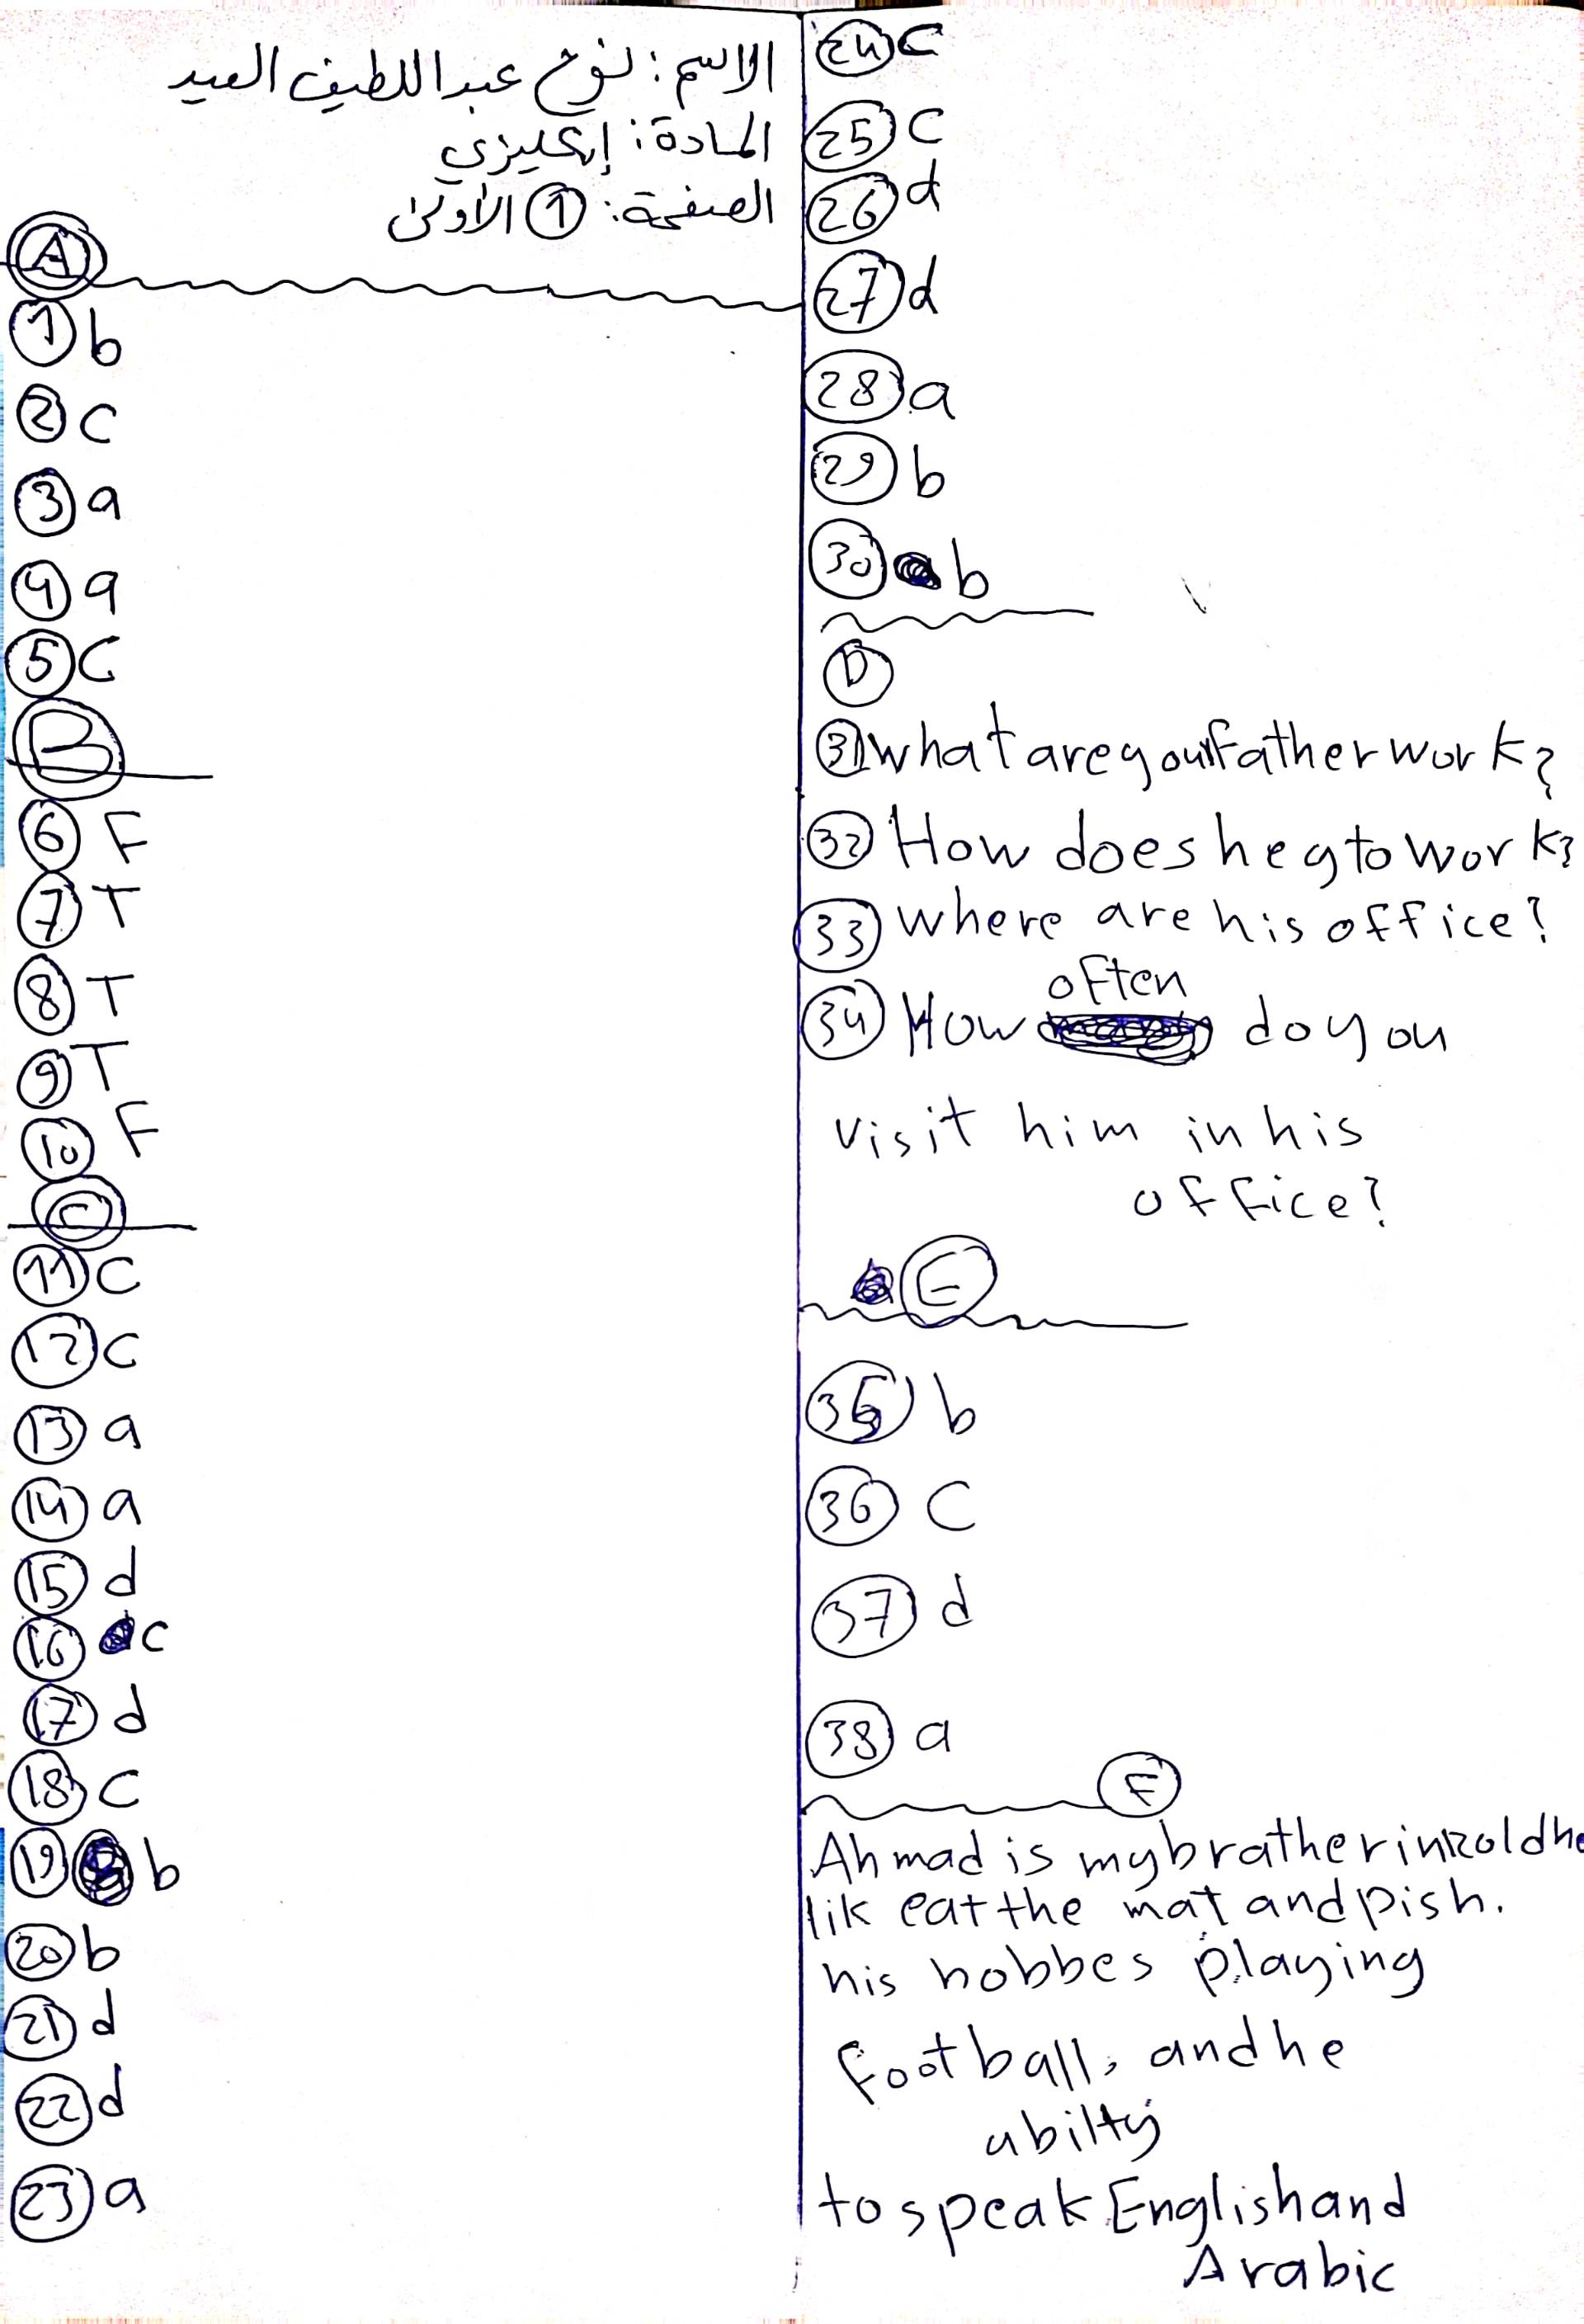 الاسم: نوح عبد اللطيف العيد
المادة: إنكليزي
الصفحة: 1 الأولى
A
1 b
2 c
3 a
4 a
5 C
B
6 F
7 T
8 T
9 T
10 F
C
11 C
12 C
13 a
14 a
15 d
16 c
17 d
18 C
19 b
20 b
21 d
22 d
23 a
24 C
25 C
26 d
27 d
28 a
29 b
30 b
D
31 what are your father work?
32 How does he g to work?
33 where are his office?
34 How often do you
visit him in his
office?
E
35 b
36 C
37 d
38 a
F
Ahmad is my brather old he
lik eat the mat and pish.
his hobbes playing
football, and he
abilty
to speak English and
Arabic